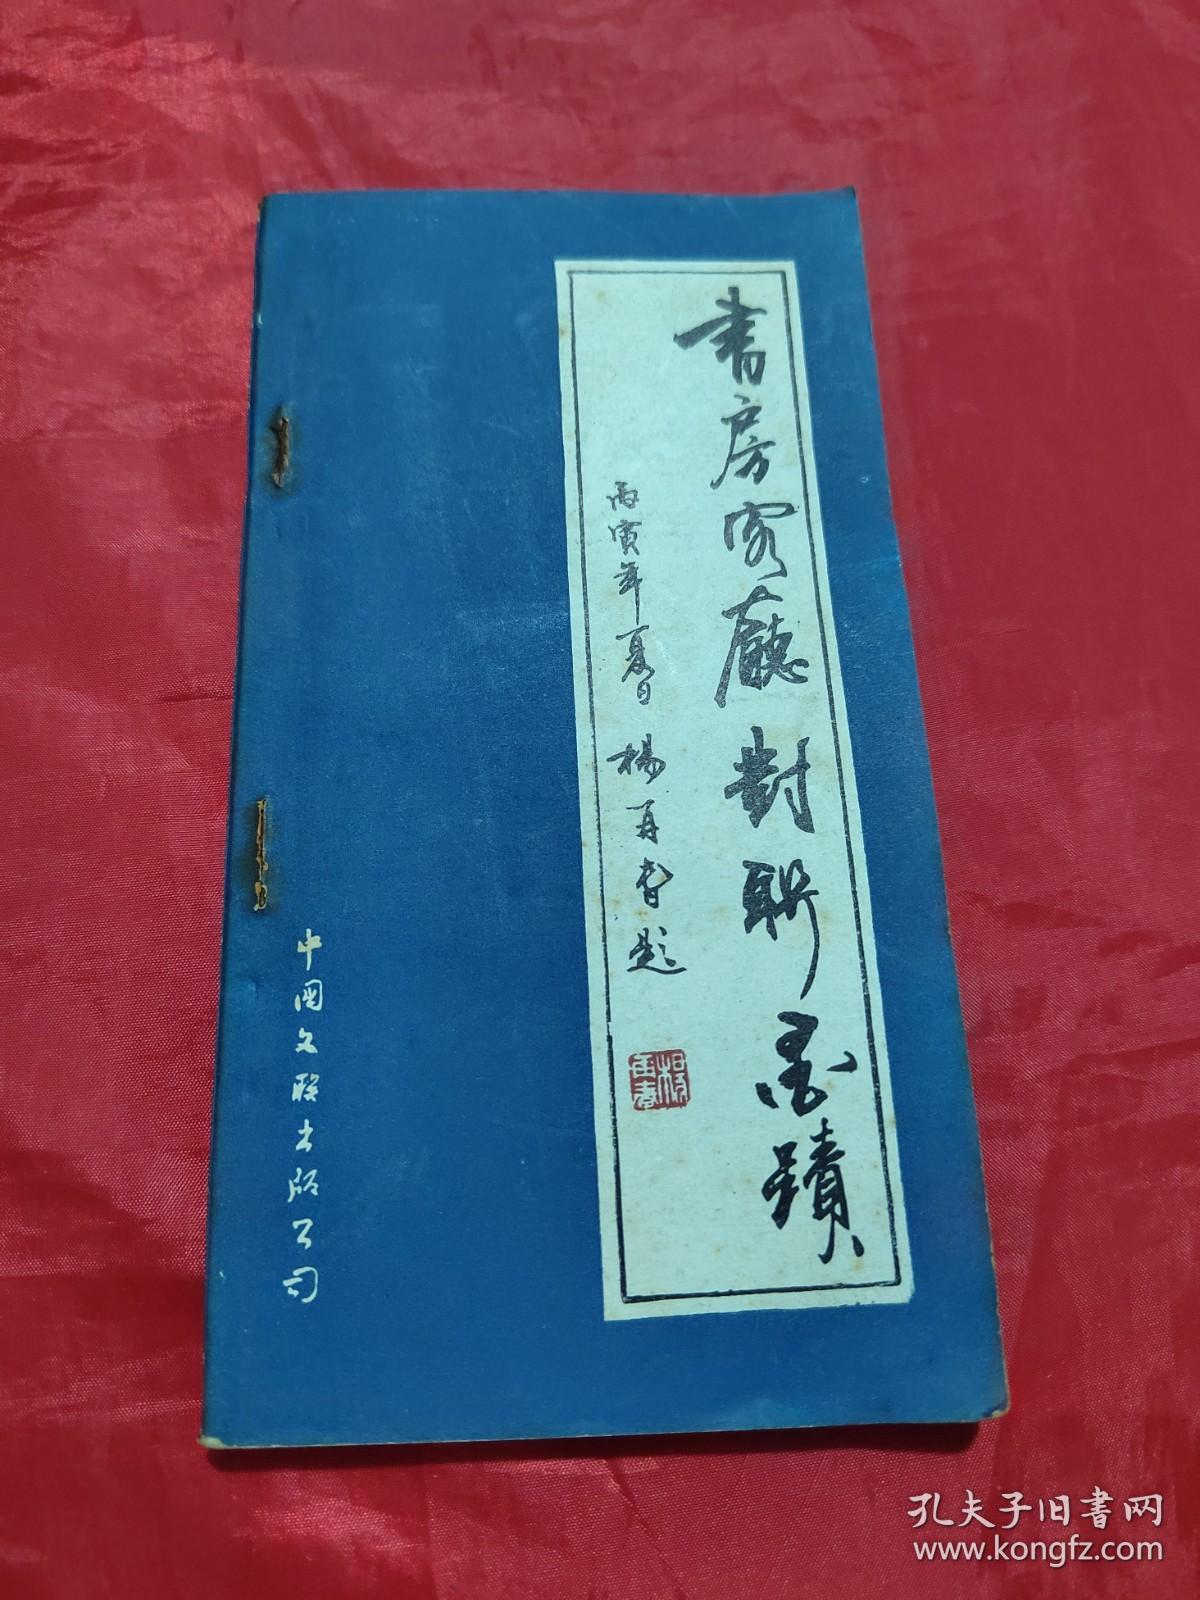 書房客廳對聯墨蹟
丙寅年夏日 楊再春題
楊再春
中国文联出版公司
孔夫子旧书网
www.kongfz.com